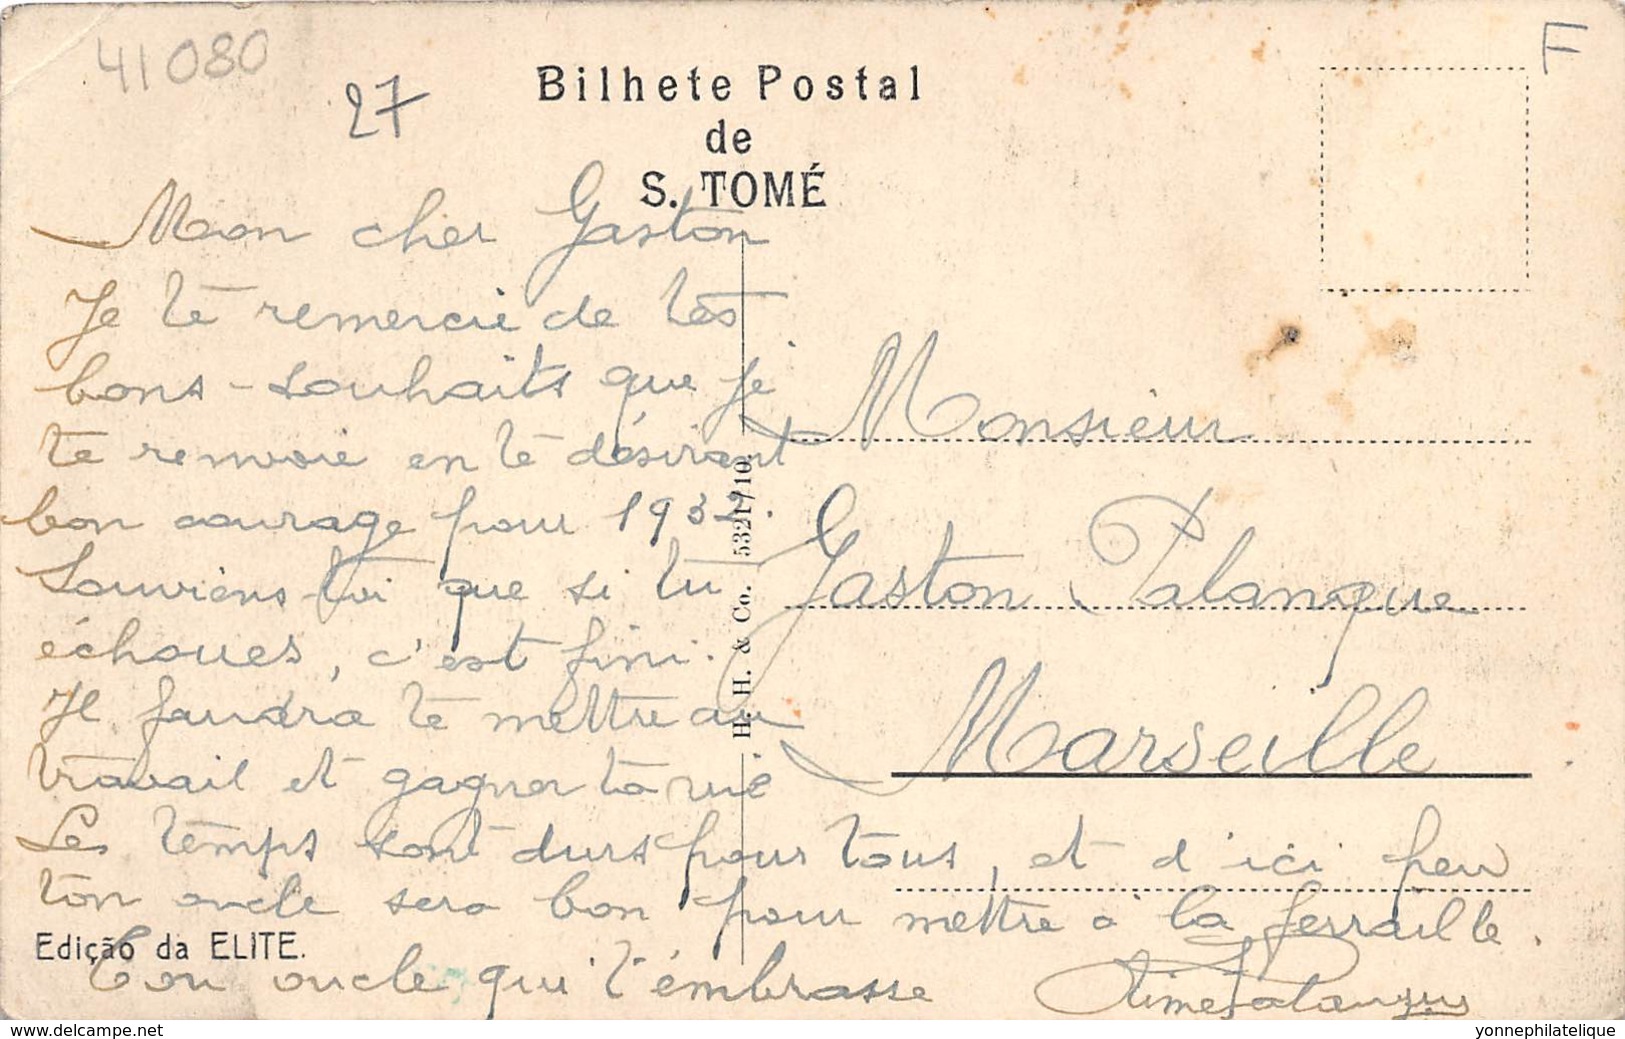 41080
27
F
Bilhete Postal
de
S. TOMÉ
Mon cher Gaston
Je te remercie de tes
bons-souhaits que je
te renvoie en te désirant
bon courage pour 1932.
Souviens-toi que si tu
échoues, c'est fini.
Il faudra te mettre au
travail et gagner ta vie
Les temps sont durs pour tous, et d'ici peu
ton oncle sera bon pour mettre à la ferraille.
Ton oncle qui t'embrasse
Aimé Palanque
Monsieur
Gaston Palanque
Marseille
H. H. & Co. 5321/10.
Edição da ELITE.
yonnephilatelique